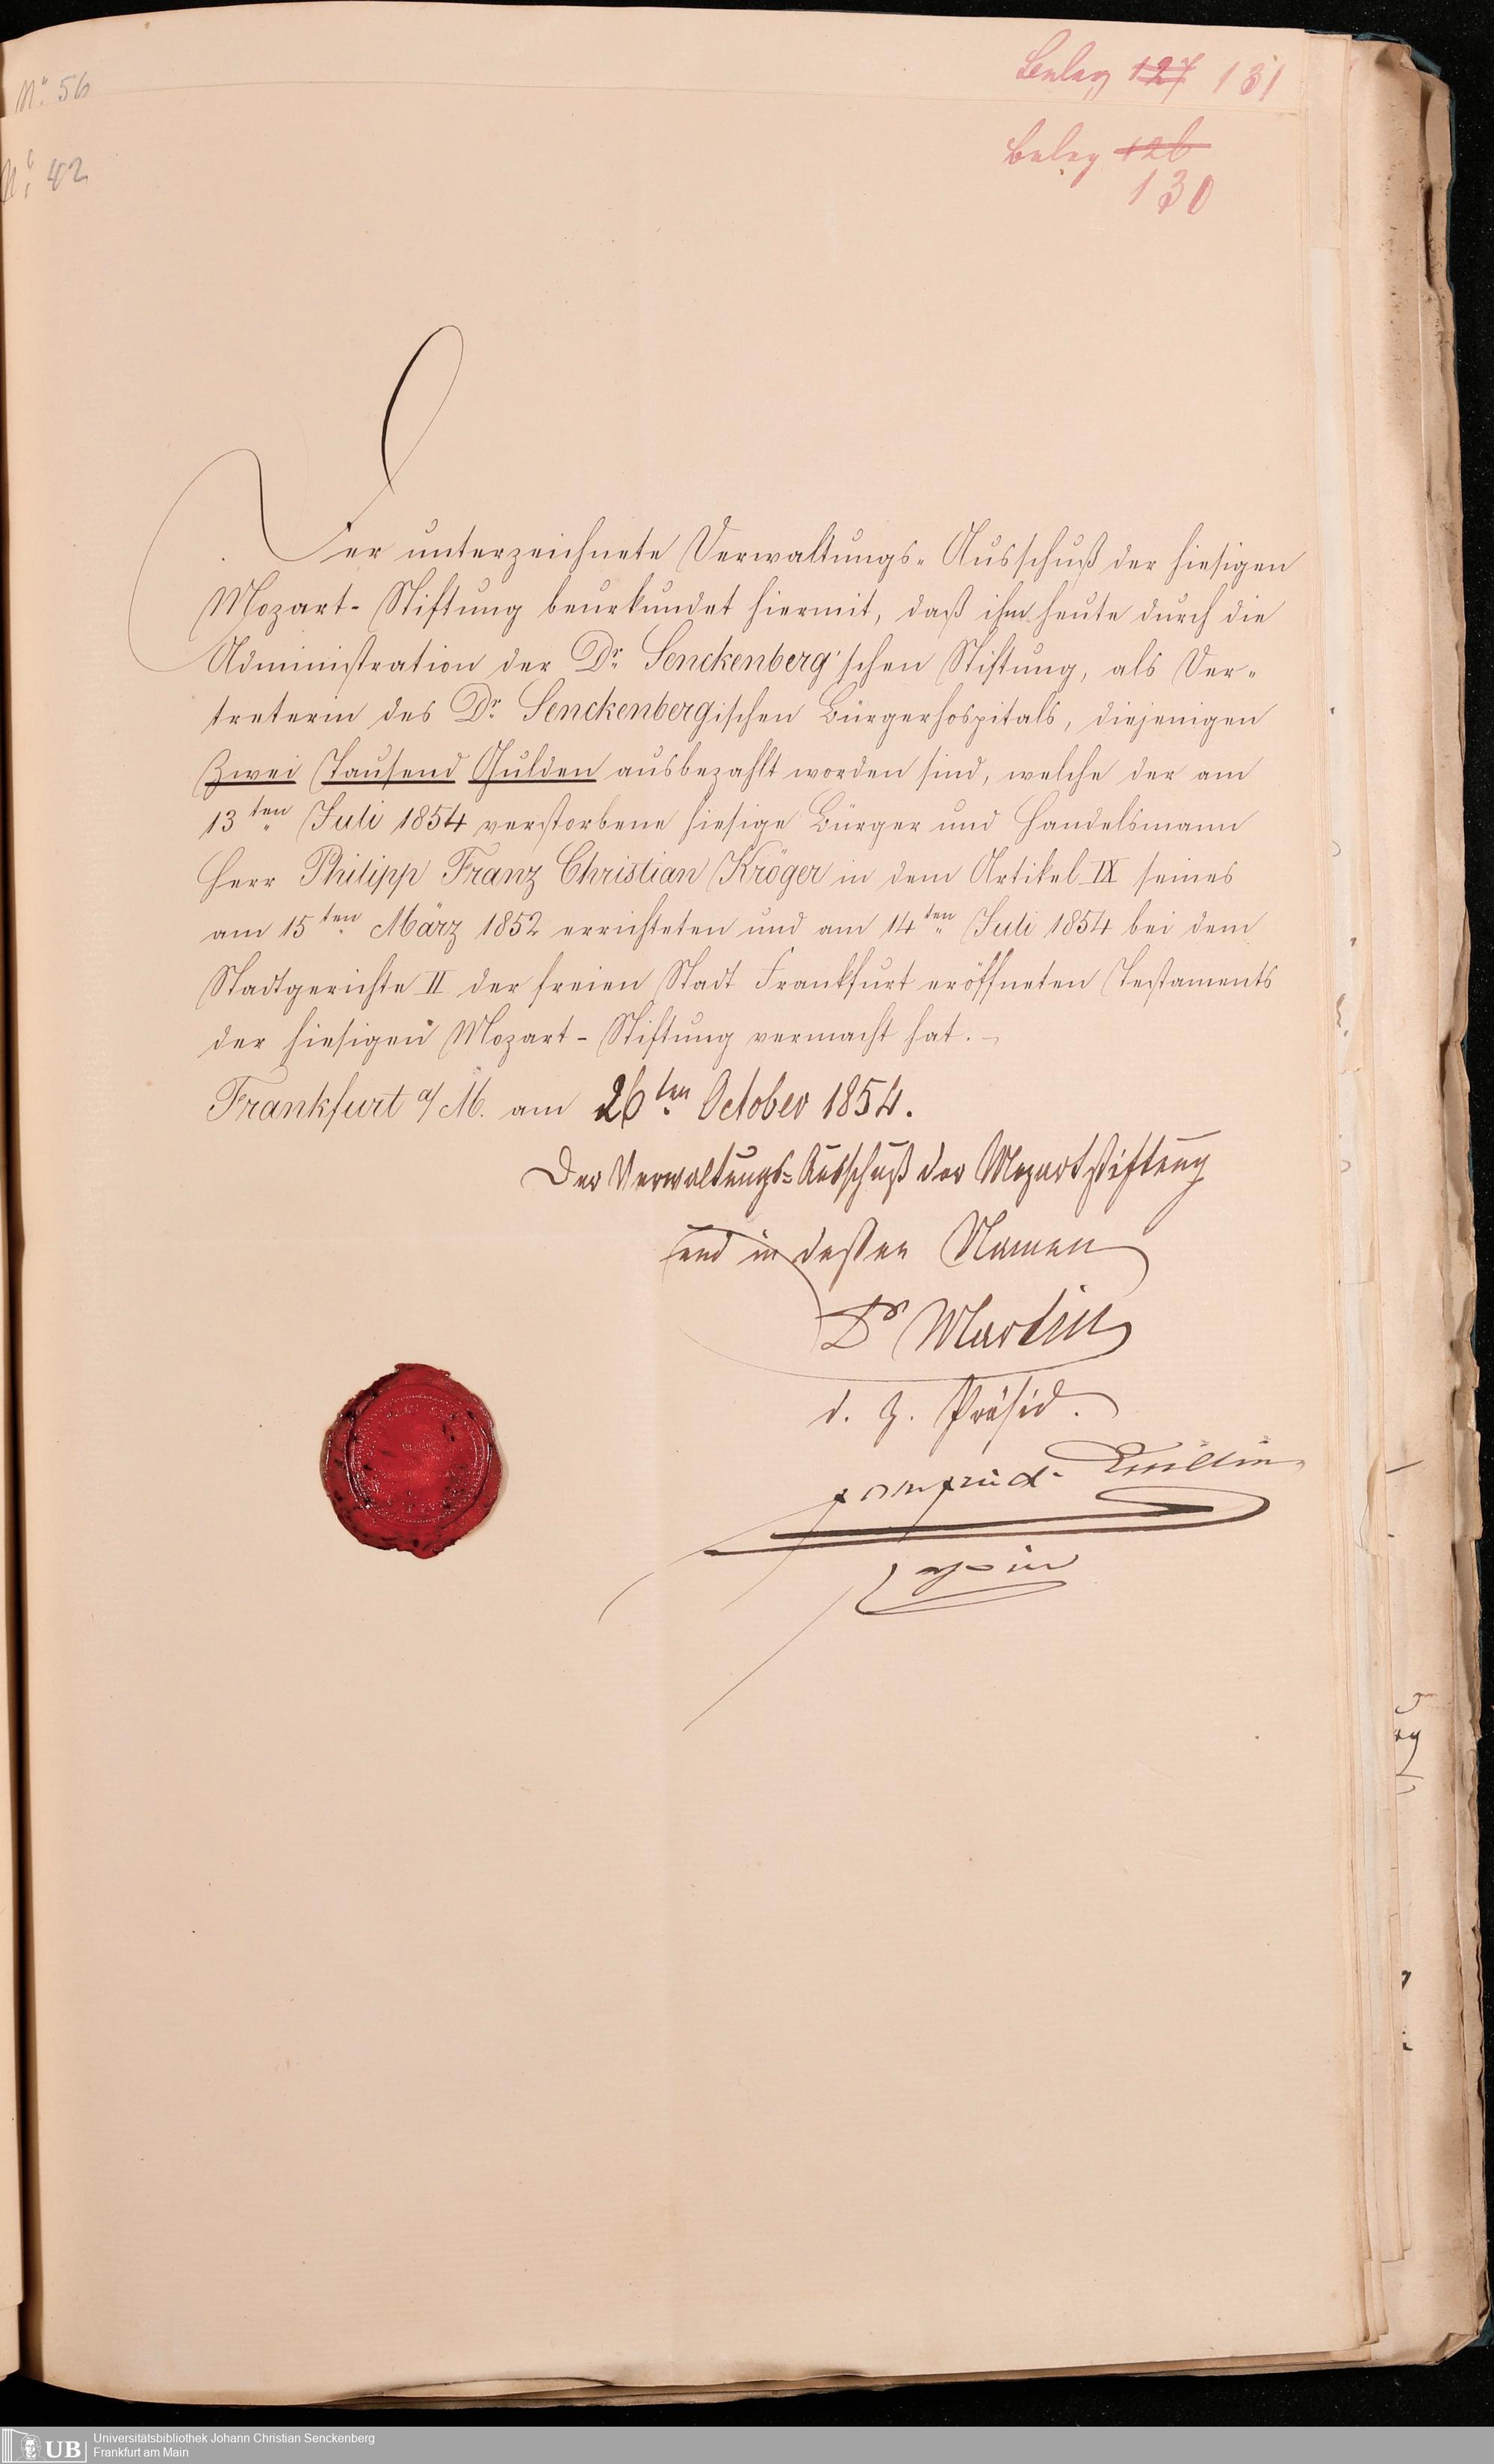 N° 56
N° 42
Beleg 127 131
Beleg 126
130
Der unterzeichnete Verwaltungs-Ausschuß der hiesigen
Mozart-Stiftung beurkundet hiermit, daß ihm heute durch die
Administration der Dr. Senckenberg'schen Stiftung, als Ver-
treterin des Dr. Senckenbergischen Bürgerhospitals, diejenigen
Zwei Tausend Gulden ausbezahlt worden sind, welche der am
13ten Juli 1854 verstorbene hiesige Bürger und Handelsmann
Herr Philipp Franz Christian Kröger in dem Artikel IX seines
am 15ten März 1852 errichteten und am 14ten Juli 1854 bei dem
Stadtgerichte II der freien Stadt Frankfurt eröffneten Testaments
der hiesigen Mozart-Stiftung vermacht hat.
Frankfurt a/M. am 26ten October 1854.
Der Verwaltungs-Ausschuß der Mozartstiftung
und in dessen Namen
Dr Martin
d. Z. Präsid.
UB
Universitätsbibliothek Johann Christian Senckenberg
Frankfurt am Main